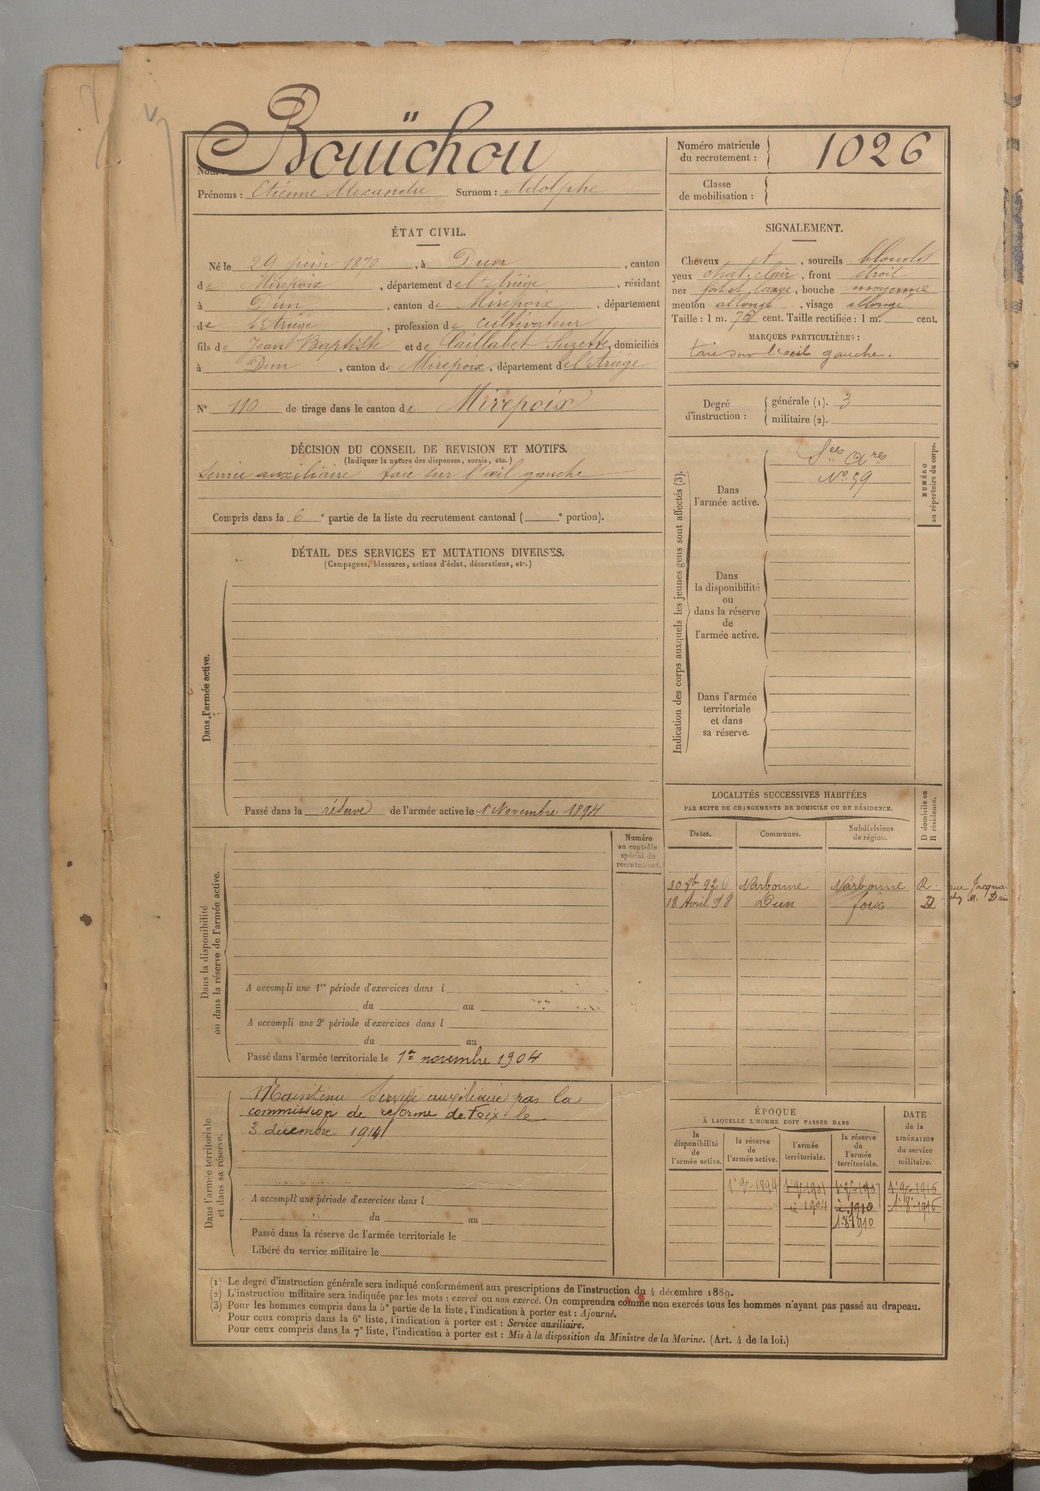 Nom : Bouïchou
Prénoms : Etienne Alexandre Surnom : Adolphe
Numéro matricule du recrutement : 1026
Classe de mobilisation :
ÉTAT CIVIL.
Né le 29 juin 1870, à Dun, canton
de Mirepoix, département de l'Ariège, résidant
à Dun, canton de Mirepoix, département
de l'Ariège, profession de cultivateur
fils de Jean Baptiste et de Caillabet Suzette, domiciliés
à Dun, canton de Mirepoix, département de l'Ariège
N° 110 de tirage dans le canton de Mirepoix
SIGNALEMENT.
Cheveux et, sourcils blonds
yeux chat. clair, front étroit
nez fort et large, bouche moyenne
menton allongé, visage allongé
Taille : 1 m. 72 cent. Taille rectifiée : 1 m. cent.
MARQUES PARTICULIÈRES :
taie sur l'oeil gauche.
Degré d'instruction : générale (1). 3
militaire (2).
DÉCISION DU CONSEIL DE REVISION ET MOTIFS.
(Indiquer la nature des dispenses, sursis, etc.)
Service auxiliaire taie sur l'œil gauche
Compris dans la 6e partie de la liste du recrutement cantonal ( e portion).
DÉTAIL DES SERVICES ET MUTATIONS DIVERSES.
(Campagnes, blessures, actions d'éclat, décorations, etc.)
Dans l'armée active.
Passé dans la réserve de l'armée active le 1er Novembre 1894
Indication des corps auxquels les jeunes gens sont affectés (3).
Dans l'armée active.
Sces Axres
N° 59
NUMÉRO au répertoire du corps.
Dans la disponibilité ou dans la réserve de l'armée active.
Dans l'armée territoriale et dans sa réserve.
Dans la disponibilité ou dans la réserve de l'armée active.
Numéro au contrôle spécial du recrutement.
A accompli une 1re période d'exercices dans l
du au
A accompli une 2e période d'exercices dans l
du au
Passé dans l'armée territoriale le 1er novembre 1904
LOCALITÉS SUCCESSIVES HABITÉES
PAR SUITE DE CHANGEMENTS DE DOMICILE OU DE RÉSIDENCE.
D domicile ou R résidence.
Dates. Communes. Subdivisions de région.
92 Narbonne Narbonne R. rue Jacqua
18 Avril 98 Dun foix D chez M.
Dans l'armée territoriale et dans sa réserve.
Maintenu Service auxiliaire par la
commission de réforme de Foix le
3 décembre 1914
A accompli une période d'exercices dans l
du au
Passé dans la réserve de l'armée territoriale le
Libéré du service militaire le
ÉPOQUE
À LAQUELLE L'HOMME DOIT PASSER DANS
DATE de la LIBÉRATION du service militaire.
la disponibilité de l'armée active.
la réserve de l'armée active.
l'armée territoriale.
la réserve de l'armée territoriale.
1er 9e 1894 1er 9e 1901 1er 9e 1907 1er 9e 1916
1904 1910 1.8.1916
1.8.1910
(1) Le degré d'instruction générale sera indiqué conformément aux prescriptions de l'instruction du 4 décembre 1889.
(2) L'instruction militaire sera indiquée par les mots : exercé ou non exercé. On comprendra comme non exercés tous les hommes n'ayant pas passé au drapeau.
(3) Pour les hommes compris dans la 5e partie de la liste, l'indication à porter est : Ajourné.
Pour ceux compris dans la 6e liste, l'indication à porter est : Service auxiliaire.
Pour ceux compris dans la 7e liste, l'indication à porter est : Mis à la disposition du Ministre de la Marine. (Art. 4 de la loi.)